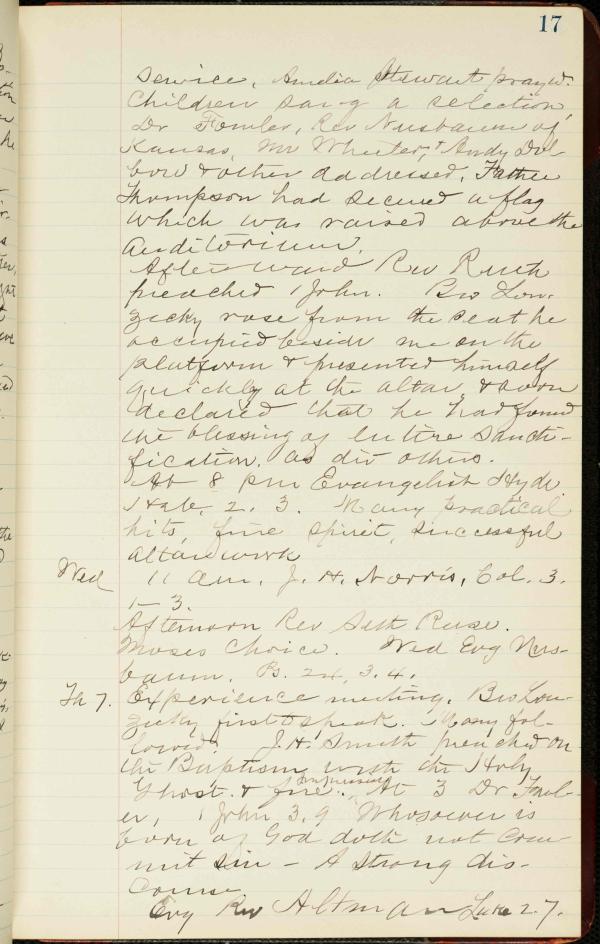 17
Service. Amelia Stewart prayed.
Children sang a selection,
Dr Fowler, Rev Nusbaum of
Kansas, Mr Wheeler, & Andy Dol
bow & other addressed. Father
Thompson had secured a flag
which was raised above the
auditorium.
Afterward Rev Ruth
preached 1 John. Bro Lou-
zecky rose from the seat he
occupied beside me on the
platform & presented himself
quickly at the altar, & soon
declared that he had found
the blessing of Entire Sancti-
fication, as did others.
At 8 pm Evangelist Hyde
Hab. 2. 3. Many practical
hits, fine spirit, successful
altar work
Wed 11 am. J. H. Norris, Col. 3.
1-3.
Afternoon Rev Seth Reese.
Moses Choice. Wed Evg Nus-
baum. Ps. 24, 3. 4.
Th 7. Experience meeting. Bro Lou-
zecky first to speak. Many fol-
lowed. J. H. Smith preached on
the Baptism with the Holy
Ghost & fire. At 3 Dr Fowl-
er, 1 John 3. 9 Whosoever is
born of God doth not com-
mit sin - A strong dis-
course.
Evg Rev Altman Luke 2. 7.